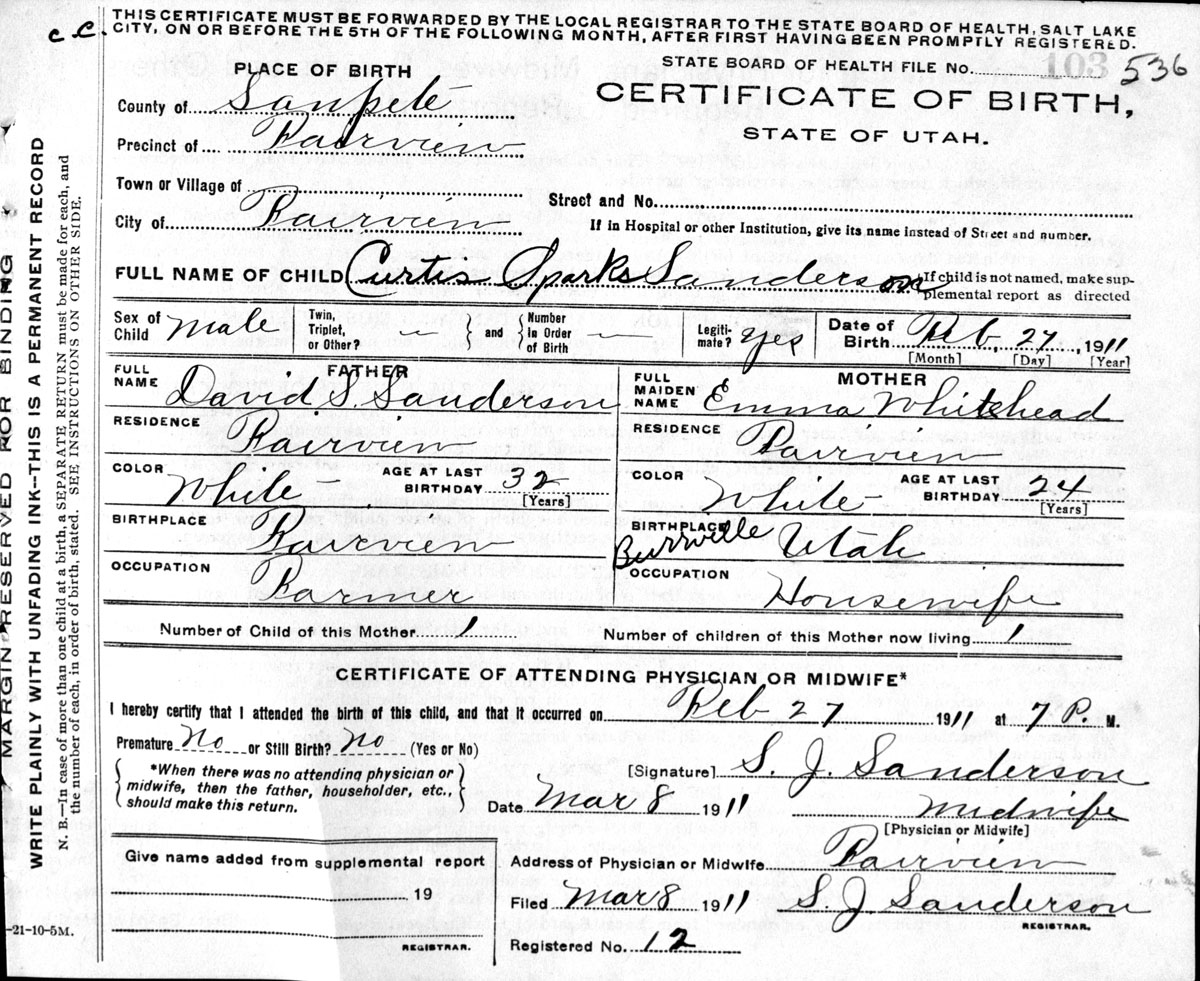 c.c. THIS CERTIFICATE MUST BE FORWARDED BY THE LOCAL REGISTRAR TO THE STATE BOARD OF HEALTH, SALT LAKE
CITY, ON OR BEFORE THE 5TH OF THE FOLLOWING MONTH, AFTER FIRST HAVING BEEN PROMPTLY REGISTERED.
STATE BOARD OF HEALTH FILE No. 103 536
PLACE OF BIRTH
CERTIFICATE OF BIRTH,
STATE OF UTAH.
County of Sanpete
Precinct of Fairview
Town or Village of
Street and No.
City of Fairview
If in Hospital or other Institution, give its name instead of Street and number.
FULL NAME OF CHILD Curtis Sparks Sanderson
{If child is not named, make sup-
plemental report as directed
Sex of Child male
Twin, Triplet, or Other? — } and { Number in Order of Birth —
Legiti-mate? yes
Date of Birth Feb 27, 1911
[Month] [Day] [Year]
FATHER
FULL NAME David S. Sanderson
RESIDENCE Fairview
COLOR White AGE AT LAST BIRTHDAY 32
[Years]
BIRTHPLACE Fairview
OCCUPATION Farmer
MOTHER
FULL MAIDEN NAME Emma Whitehead
RESIDENCE Fairview
COLOR White AGE AT LAST BIRTHDAY 24
[Years]
BIRTHPLACE Burrville Utah
OCCUPATION Housewife
Number of Child of this Mother 1 Number of children of this Mother now living 1
CERTIFICATE OF ATTENDING PHYSICIAN OR MIDWIFE*
I hereby certify that I attended the birth of this child, and that it occurred on Feb 27 1911 at 7 P. M.
Premature No or Still Birth? No (Yes or No)
{ *When there was no attending physician or
midwife, then the father, householder, etc.,
should make this return. }
[Signature] S. J. Sanderson
Date Mar 8 1911 midwife
[Physician or Midwife]
Give name added from supplemental report
19
REGISTRAR.
Address of Physician or Midwife Fairview
Filed Mar 8 1911 S J Sanderson
REGISTRAR.
Registered No. 12
MARGIN RESERVED FOR BINDING
WRITE PLAINLY WITH UNFADING INK—THIS IS A PERMANENT RECORD
N. B.—In case of more than one child at a birth, a SEPARATE RETURN must be made for each, and
the number of each, in order of birth, stated. SEE INSTRUCTIONS ON OTHER SIDE.
-21-10-5M.